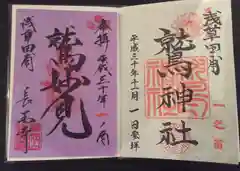 浅草田圃
鷲神社
平成三十年十一月一日参拝
一之酉
奉拝
平成三十年
鷲妙見
浅草田圃
長國寺